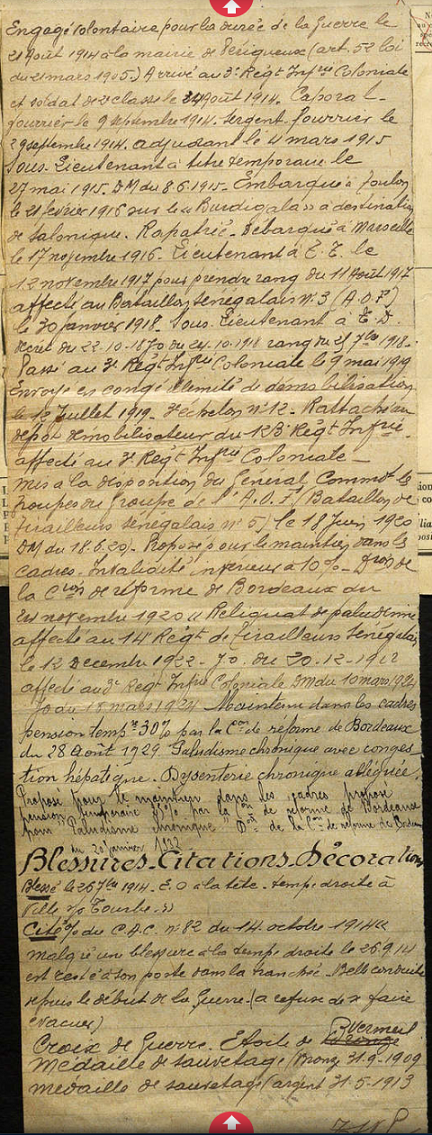 Engagé volontaire pour la durée de la Guerre le
21 Août 1914 à la mairie de Périgueux (art. 52 loi
du 21 mars 1905.) Arrivé au 3e Régt Infrie Coloniale
et soldat de 2e classe le 24 Août 1914. Caporal-
fourrier le 9 septembre 1914. sergent fourrier le
29 septembre 1914. adjudant le 11 mars 1915
Sous-Lieutenant à titre temporaire le
27 mai 1915. DM du 8.6.1915. Embarqué à Toulon
le 21 février 1916 sur le "Burdigala" à destination
de Salonique. Rapatrié. Débarqué à Marseille
le 17 novembre 1916. Lieutenant à T.T. le
12 novembre 1917 pour prendre rang du 11 Août 1917
affecté au Bataillon Sénégalais n° 3 (A.O.F)
le 30 janvier 1918. Sous-Lieutenant à T.D.
décret du 22.10.1870 du 24.10.1918 rang du 25 7bre 1918.
Passé au 3e Régt Infrie Coloniale le 9 mai 1919
Envoyé en congé illimité de démobilisation
le 12 Juillet 1919. échelon n° 12. Rattaché au
dépôt démobilisateur du Régt Infrie.
affecté au 3e Régt Infrie Coloniale_
mis à la disposition du Général Commdt les
troupes du Groupe de l'A.O.F. (Bataillon de
tirailleurs sénégalais n° 5) le 18 Juin 1920
DM du 18.6.20). Proposé pour le maintien dans les
cadres. Invalidité inférieur à 10%. Dson de
la Cion de réforme de Bordeaux du
24 novembre 1920 "Reliquat de paludisme
affecté au 14 Régt de Tirailleurs Sénégalais
le 12 Décembre 1922. J.O. du 20.12.1922
affecté au 3e Régt Infrie Coloniale DM du 10 mars 1924
JO du 18 mars 1924. Maintenu dans les cadres
pension tempre 30% par la Con de réforme de Bordeaux
du 28 Août 1929. Paludisme chronique avec conges
tion hépatique. Dysenterie chronique alléguée.
Proposé pour le maintien dans les cadres proposé
pension temporaire % par la Con de réforme de Bordeaux
pour Paludisme chronique Don de la Con de réforme de Bordeaux
du 20 janvier
Blessures-Citations-Décorations
Blessé le 26 7bre 1914. E.O à la tête-tempe droite à
Ville s/s Tourbe.
Cité O/ du C.A.C. n° 82 du 14 octobre 1914 "
malgré une blessure à la tempe droite le 26.9.14
est resté à son poste dans la tranchée. Belle conduite
depuis le début de la Guerre. (a refusé de se faire
évacuer)
Croix de Guerre. Etoile de Bronze Vermeil
Médaille de sauvetage (Bronze 31.9.1909
médaille de sauvetage (argent 31.5.1913